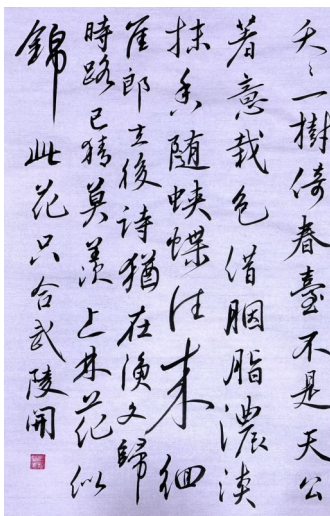 夭〻一樹倚春臺不是天公
著意栽色借胭脂濃淡
抹香随蛱蝶往来徊
崔郎去後詩猶在漁父歸
時路已猜莫羨上林花似
錦此花只合武陵開